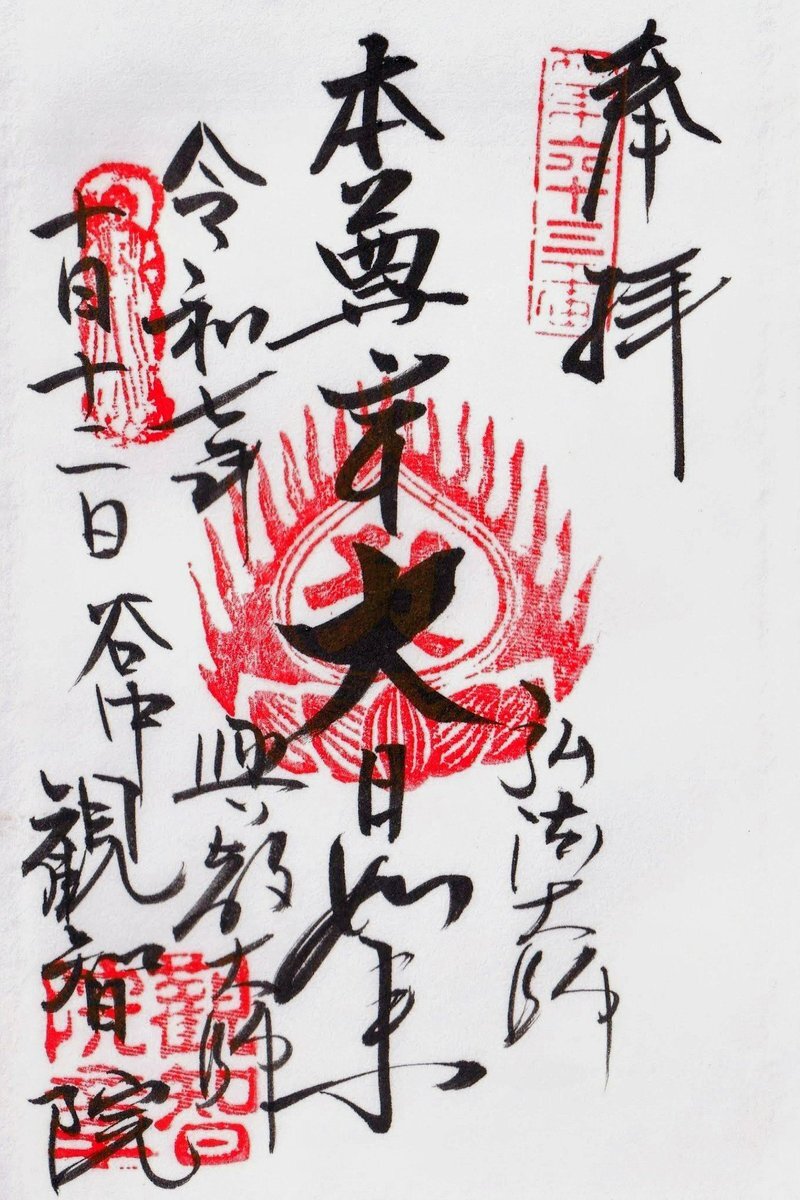 奉拝
第六十三番
本尊
大日如来
弘法大師
興教大師
令和七年
十月十二日
谷中 観智院
觀智院